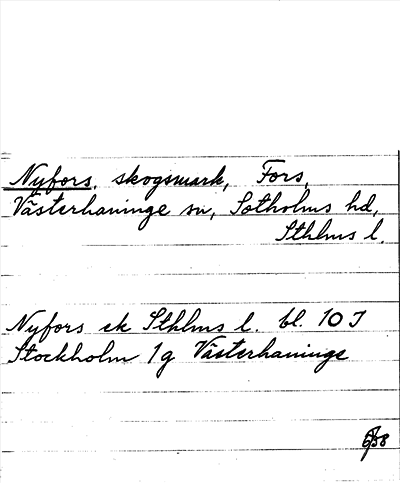 Nyfors, skogsmark, Fors,
Västerhaninge sn, Sotholms hd,
Sthlms l.
Nyfors ek Sthlms l. bl. 10 J
Stockholm 1g Västerhaninge